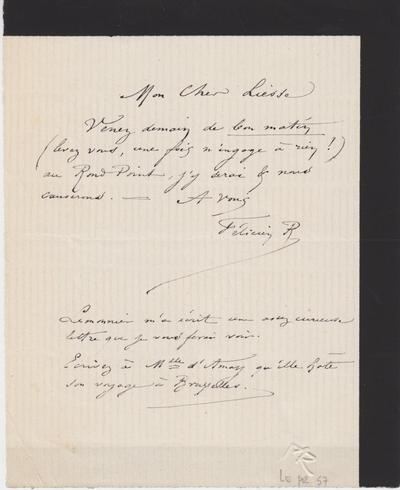 Mon Cher Liesse
Venez demain de bon matin
(levez vous, une fois n'engage à rien !)
au Rond-Point, j'y serai & nous
causerons. — A Vous
Félicien R
Lemonnier m'a écrit une assez curieuse
lettre que je vous ferai voir.
Ecrivez à Mlle d'Amay qu'elle hâte
son voyage à Bruxelles.